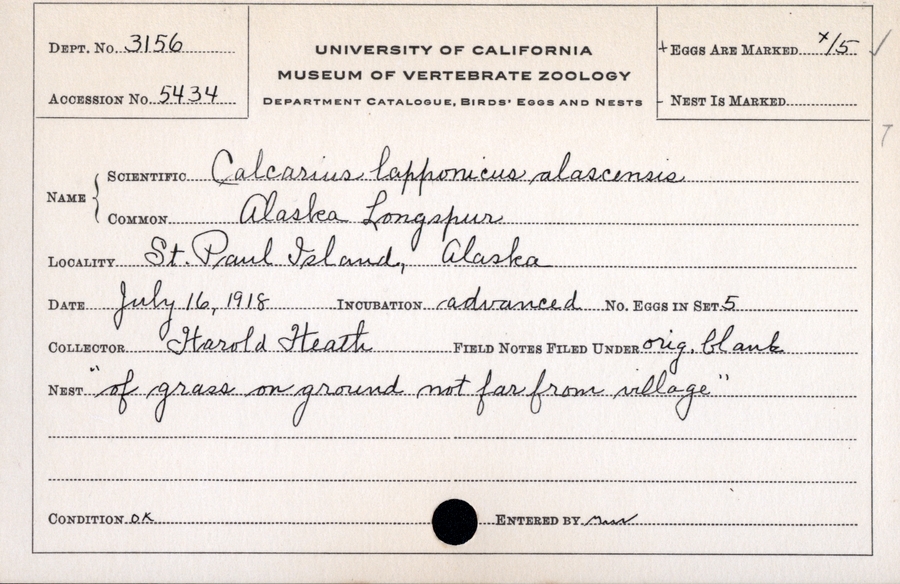 Dept. No. 3156
Accession No. 5434
UNIVERSITY OF CALIFORNIA
MUSEUM OF VERTEBRATE ZOOLOGY
Department Catalogue, Birds' Eggs and Nests
+ Eggs Are Marked x/5 ✓
- Nest Is Marked
7
Name { Scientific Calcarius lapponicus alascensis
Common Alaska Longspur
Locality St. Paul Island, Alaska
Date July 16, 1918 Incubation advanced No. Eggs in Set 5
Collector Harold Heath Field Notes Filed Under orig. blank
Nest "of grass on ground not far from village"
Condition OK Entered by